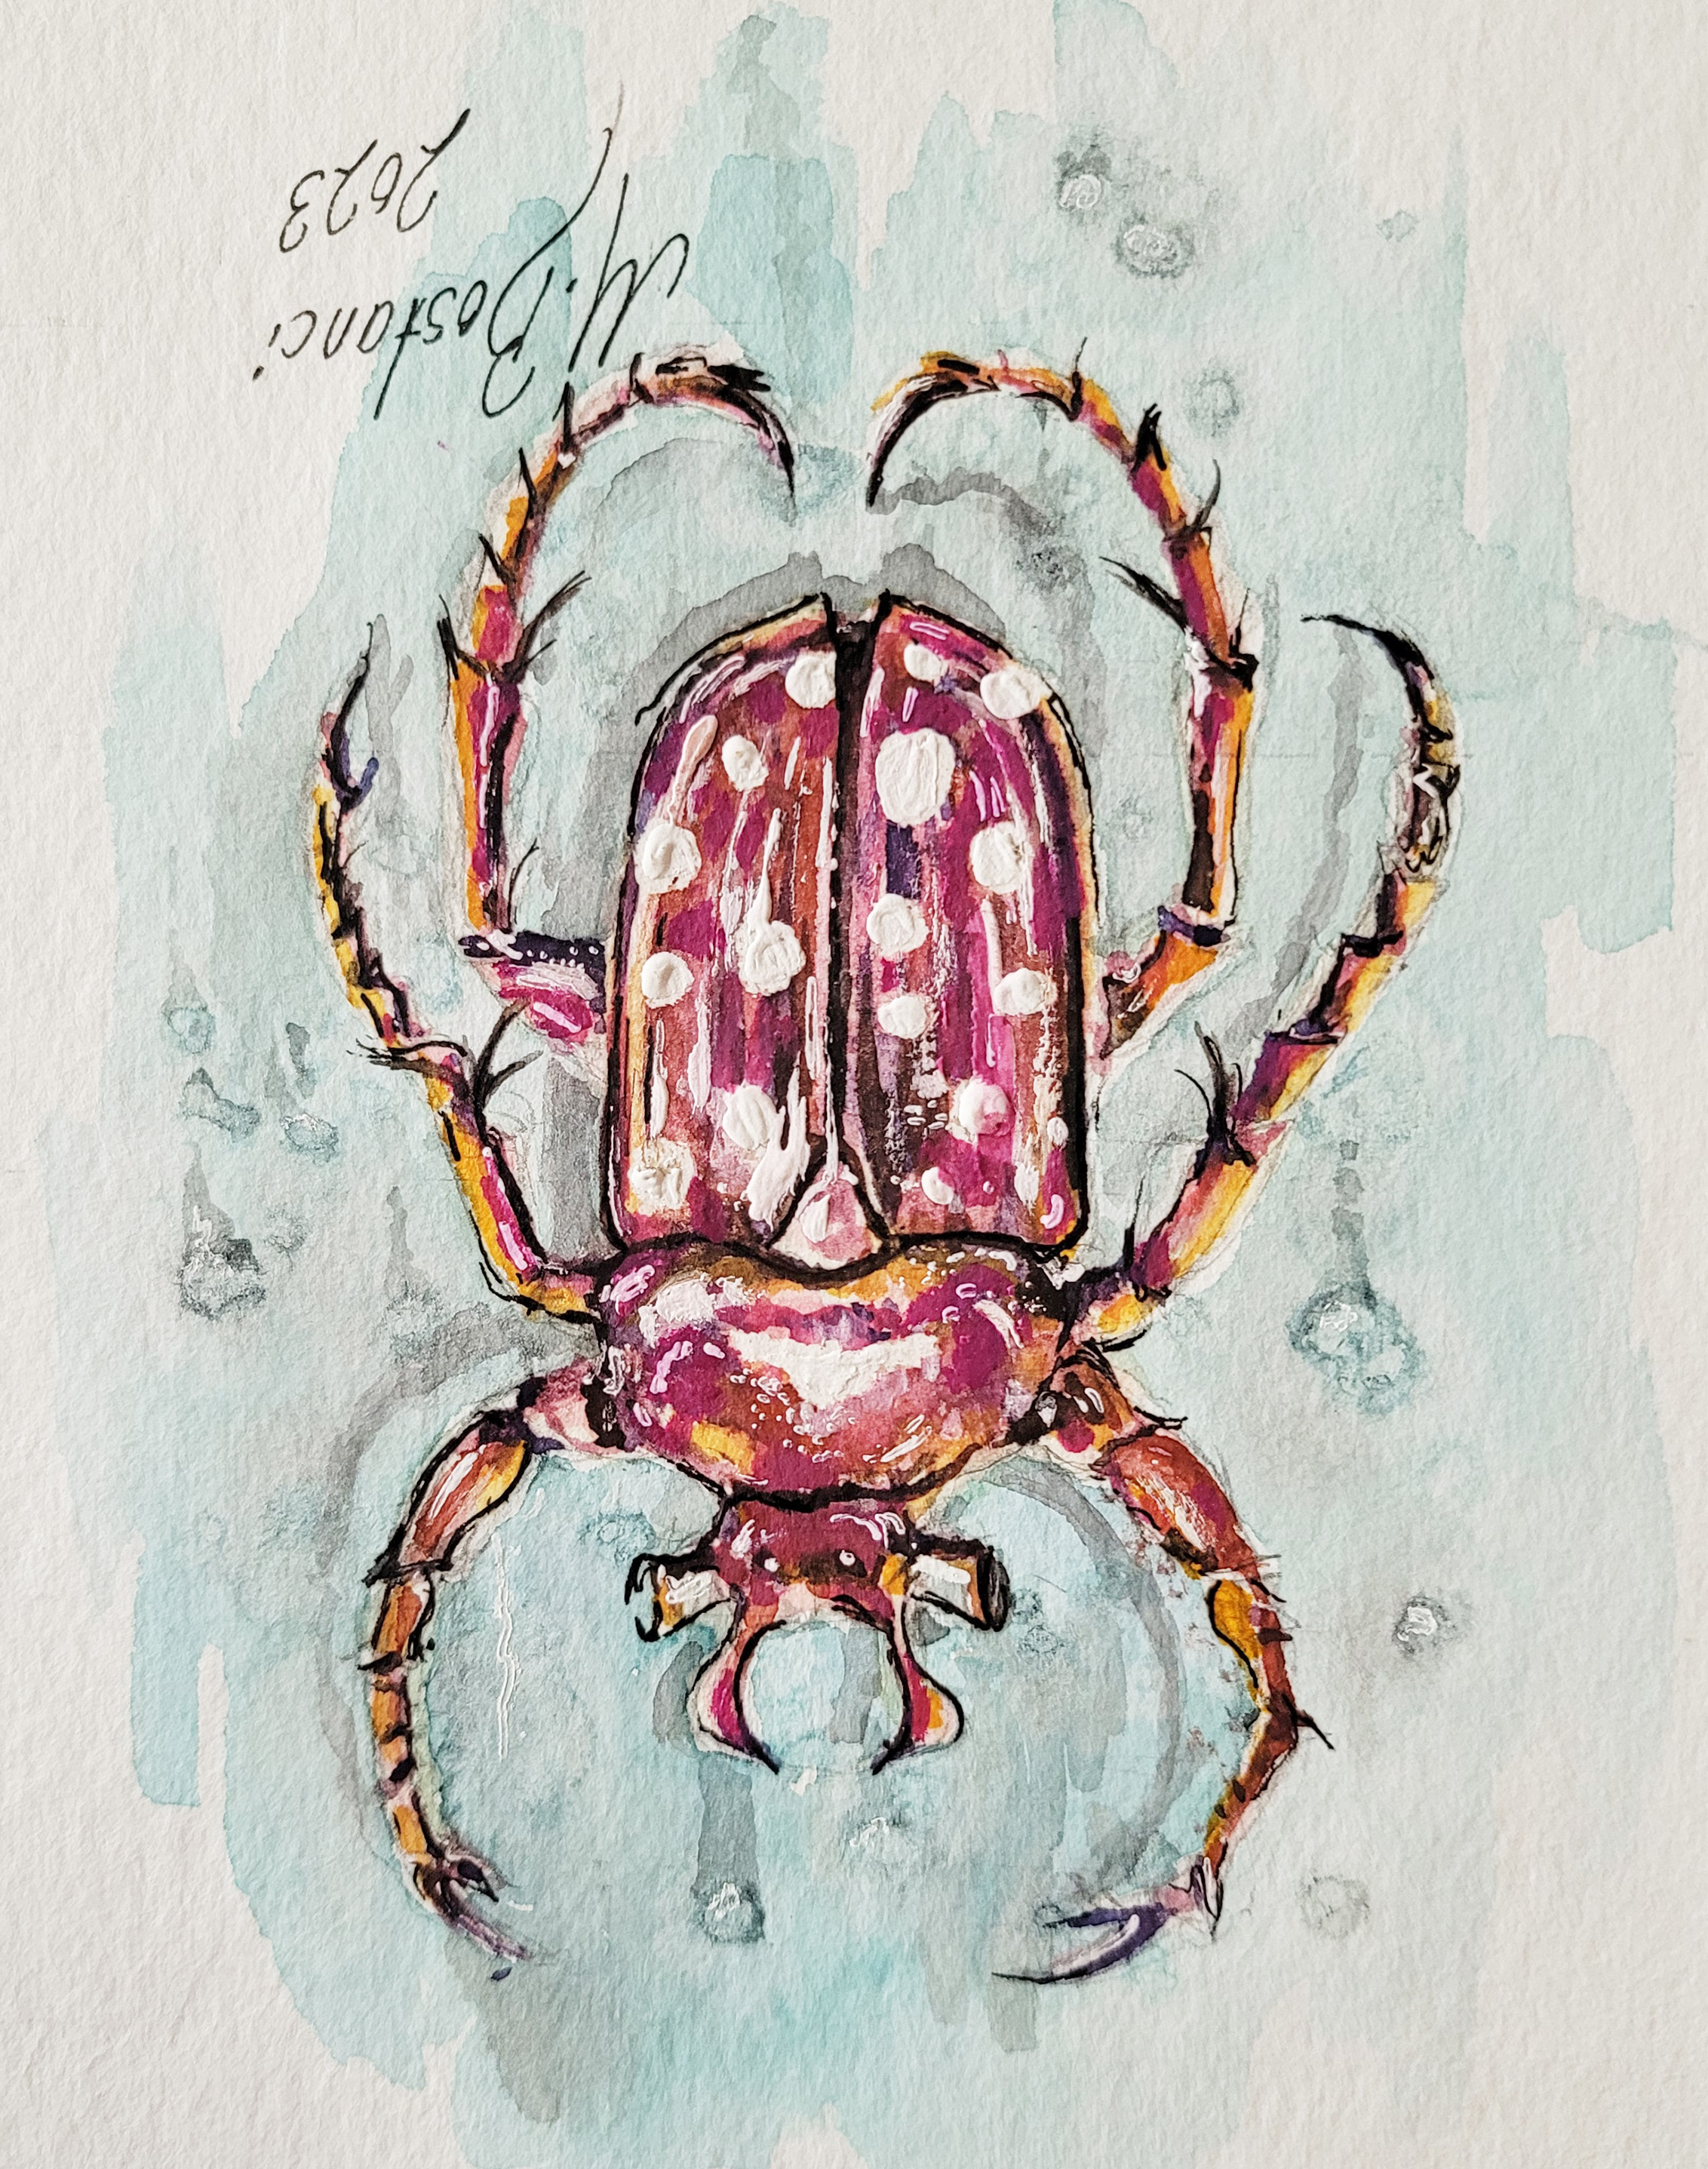 M. Bostanci
2023